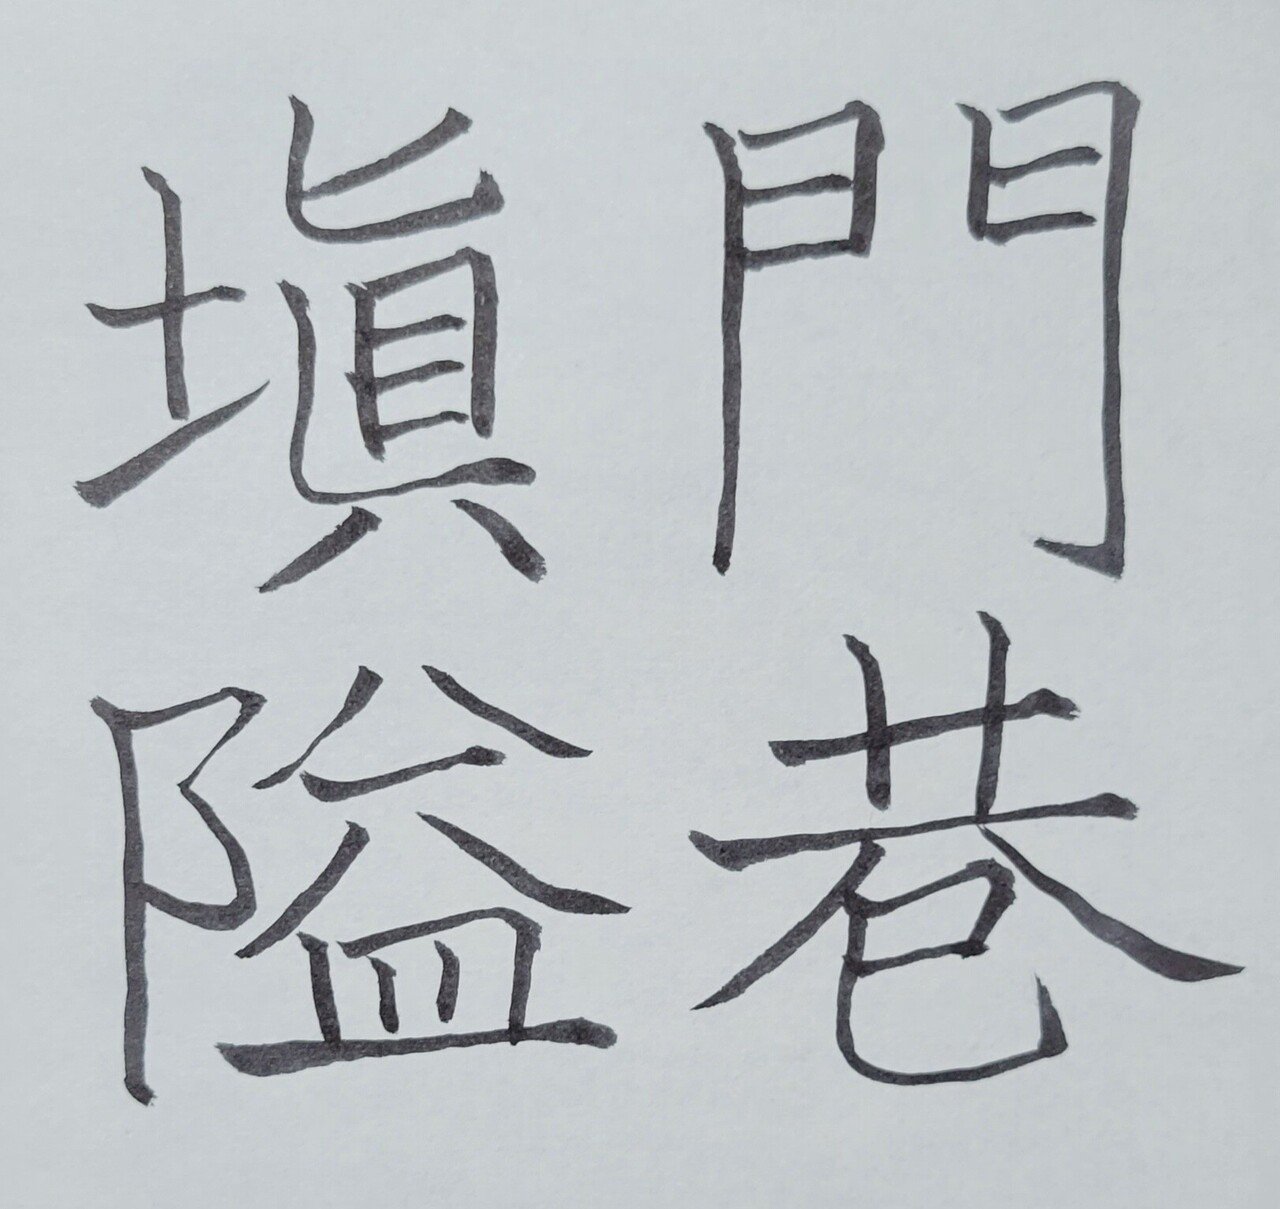 門巷
塡隘